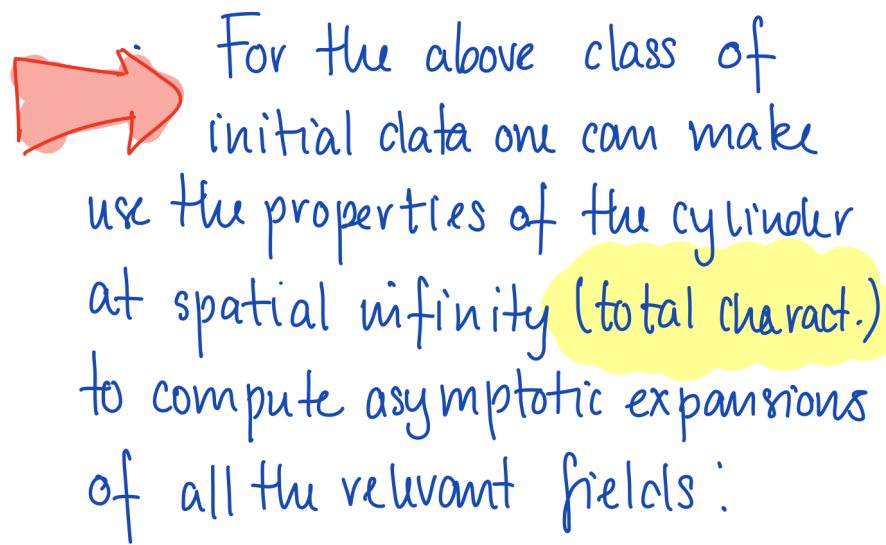 For the above class of
initial data one can make
use the properties of the cylinder
at spatial infinity (total charact.)
to compute asymptotic expansions
of all the relevant fields: